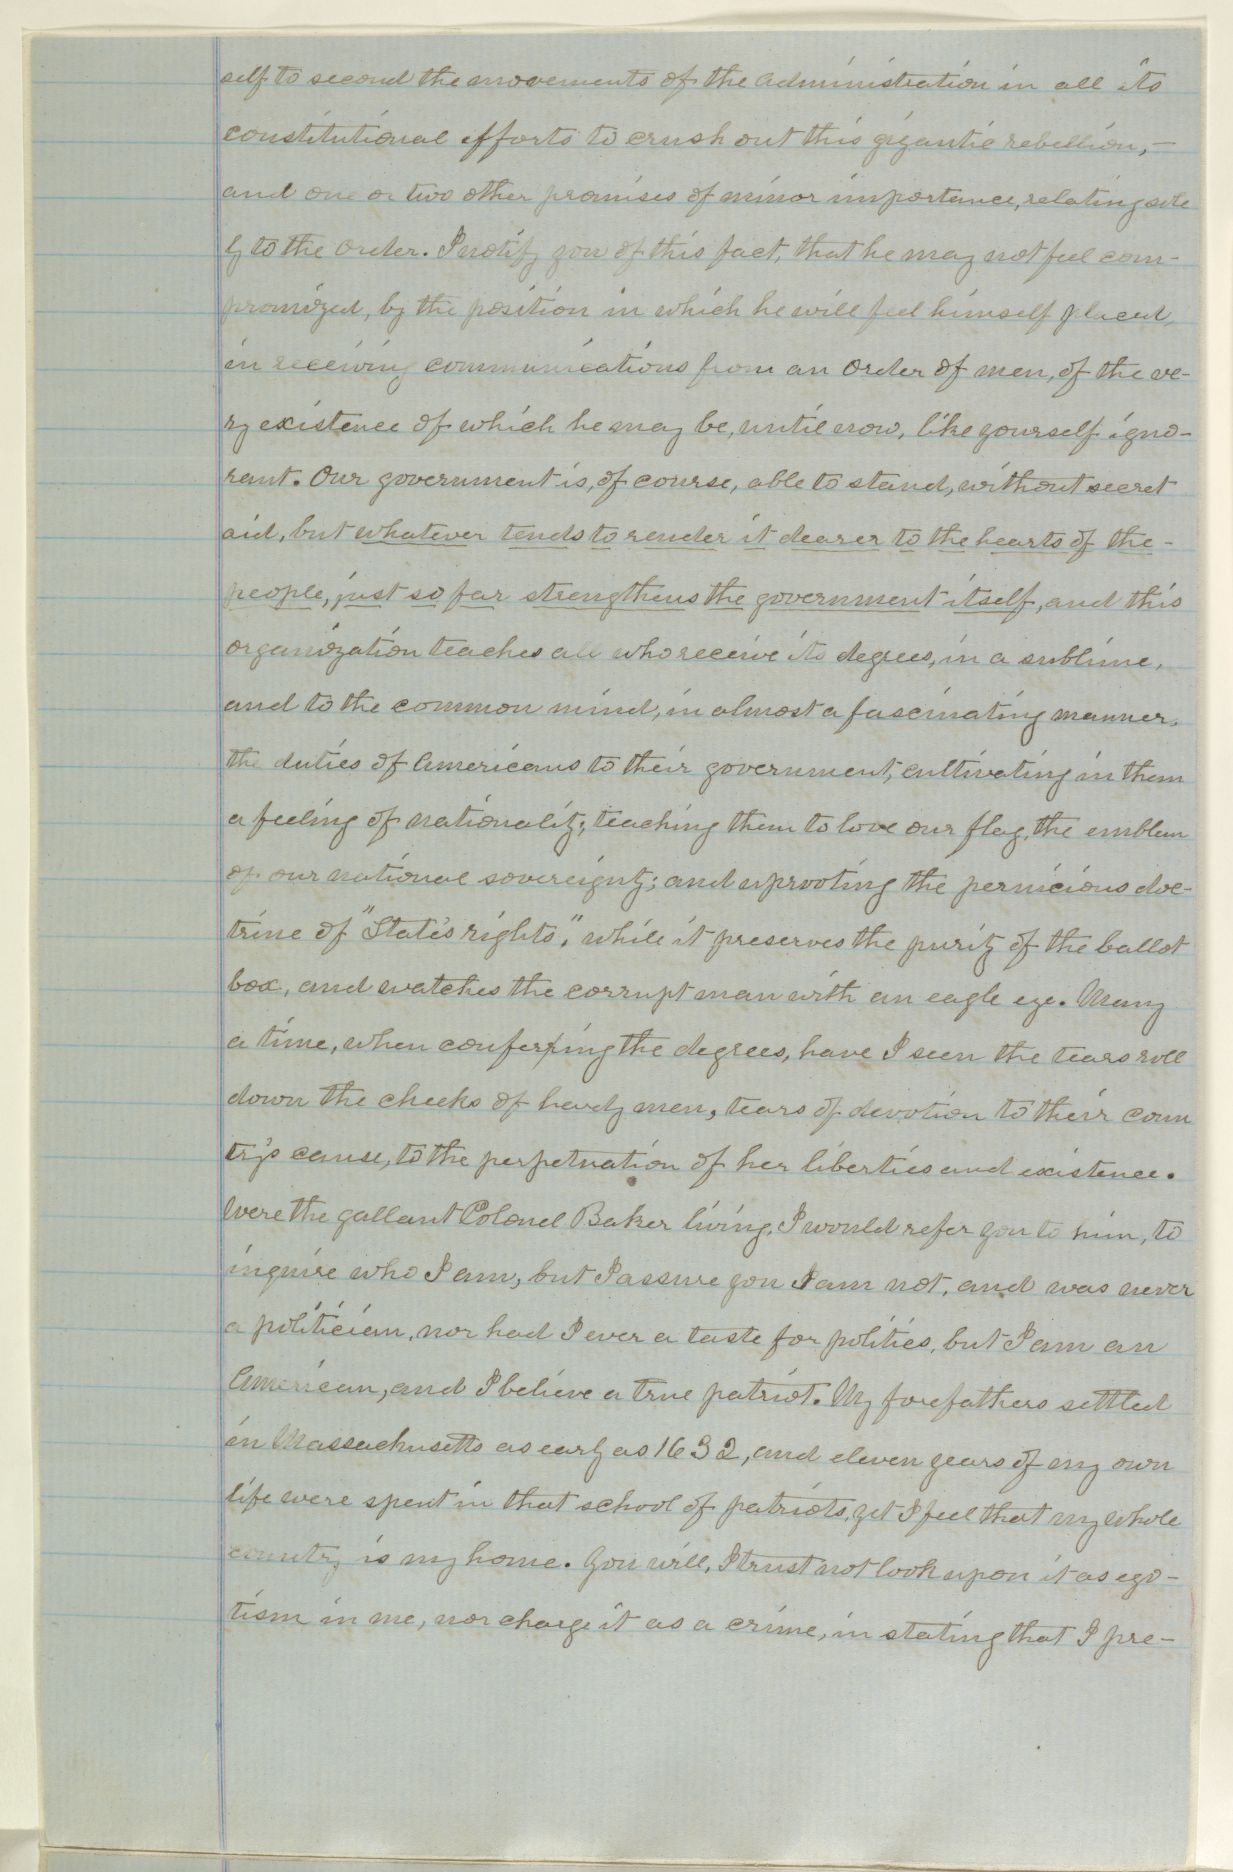 self to second the movements of the Administration in all its
constitutional efforts to crush out this gigantic rebellion,—
and one or two other promises of minor importance, relating sole
ly to the Order. I notify you of this fact, that he may not feel com-
promized, by the position in which he will feel himself placed,
in receiving communications from an Order of men, of the ve-
ry existence of which he may be, until now, like yourself igno-
rant. Our government is, of course, able to stand, without secret
aid, but whatever tends to render it dearer to the hearts of the-
people, just so far strengthens the government itself, and this
organization teaches all who receive its degrees, in a sublime,
and to the common mind, in almost a fascinating manner,
the duties of Americans to their government, cultivating in them
a feeling of nationality; teaching them to love our flag, the emblem
of our national sovereignty; and uprooting the pernicious doc-
trine of "State's rights", while it preserves the purity of the ballot
box, and watches the corrupt man with an eagle eye. Many
a time, when conferring the degrees, have I seen the tears roll
down the cheeks of hardy men, tears of devotion to their coun
try's cause, to the perpetuation of her liberties and existence.
Were the gallant Colonel Baker living, I would refer you to him, to
inquire who I am, but I assure you I am not, and was never
a politician, nor had I ever a taste for politics, but I am an
American, and I believe a true patriot. My forefathers settled
in Massachusetts as early as 1632, and eleven years of my own
life were spent in that school of patriots, yet I feel that my whole
country is my home. You will, I trust not look upon it as ego-
tism in me, nor charge it as a crime, in stating that I pre-